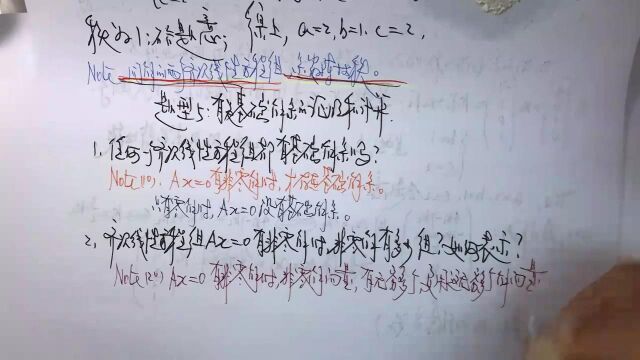 秩为1,不合题意; 综上, a=2, b=1, c=2,
Note 同解的两个齐次线性方程组,系数矩阵
题型5:有关基础解系的证明和计算
1. 任何一个齐次线性方程组都有基础解系吗?
Note(1°). Ax=0有非零解时,才有基础解系。
只有零解时, Ax=0没有基础解系。
2. 齐次线性方程组Ax=0有非零解时,非零解有多少组?如何表示?
Note(2°) Ax=0有非零解时,非零解,有无穷多个,